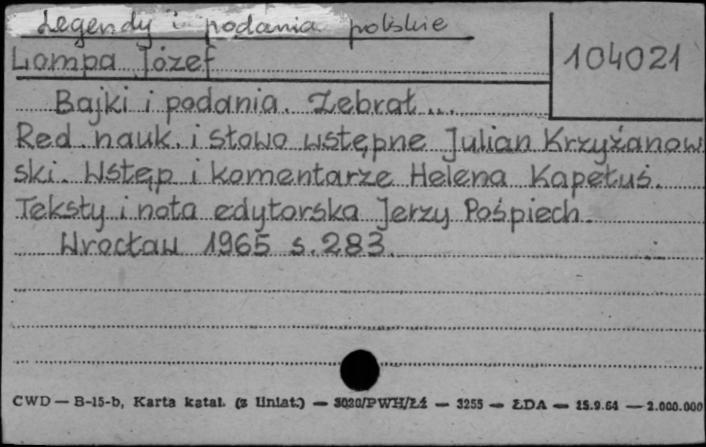 Legendy i podania polskie
Lompa Józef
104021
Bajki i podania. Zebrał...
Red. nauk. i słowo wstępne Julian Krzyżanow
ski. Wstęp i komentarze Helena Kapełuś.
Teksty i nota edytorska Jerzy Pośpiech.
Wrocław 1965 s. 283.
CWD — B-15-b, Karta katal. (z liniat.) — 3020/PWH/Łź — 3255 — ŁDA — 15.9.64 — 2.000.000